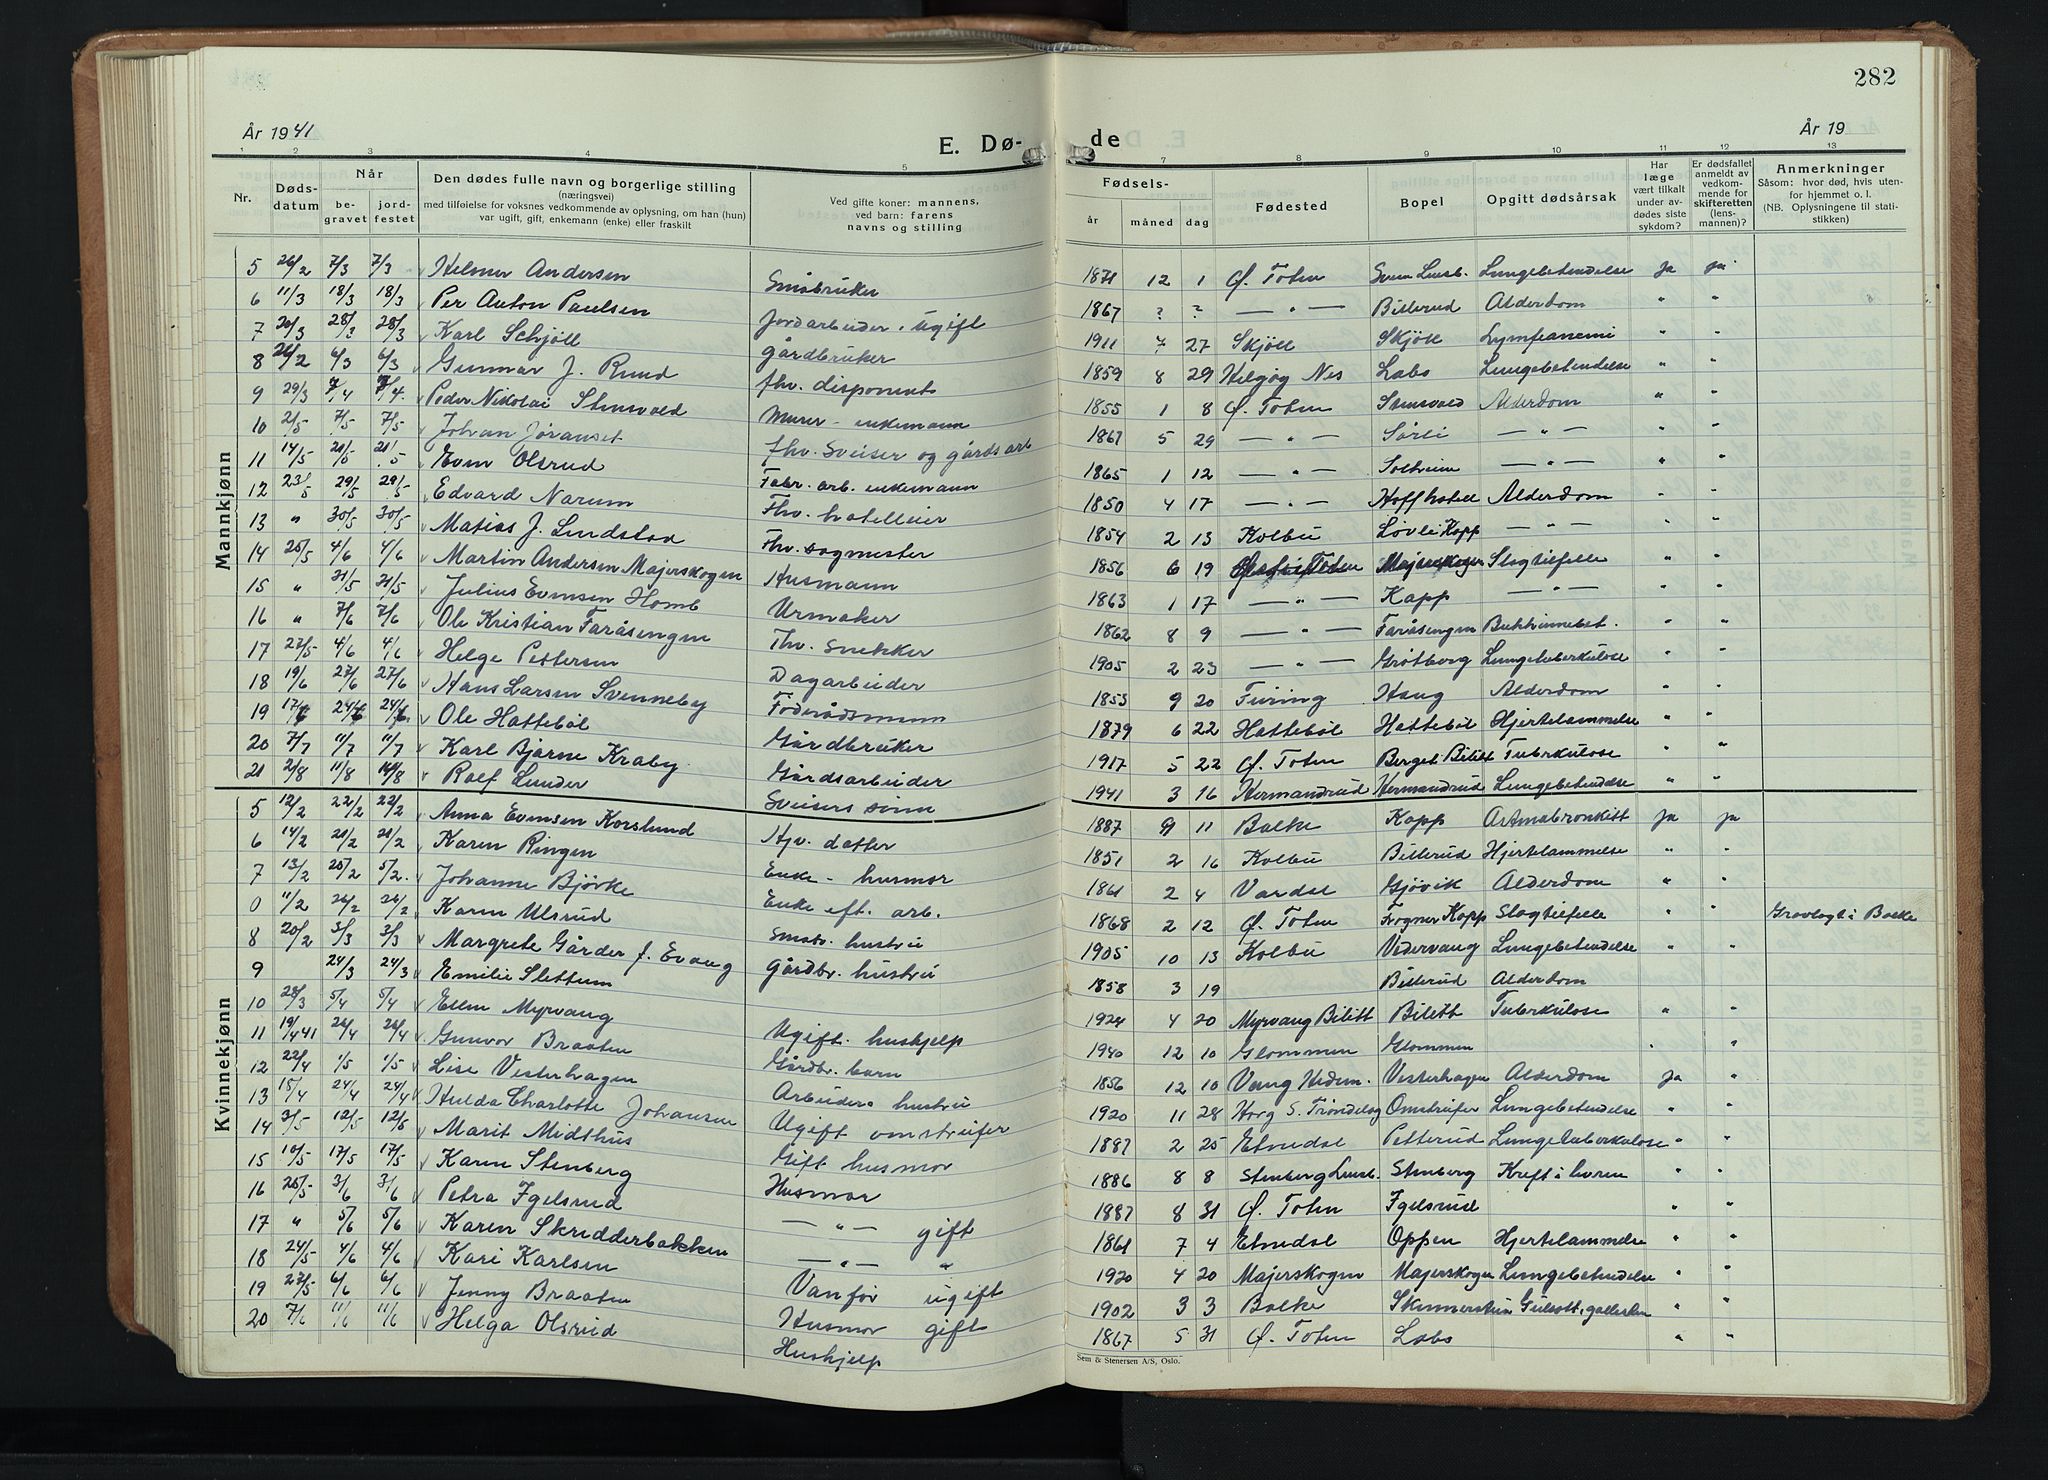 282
År 1941
E. Dø-
de
År 19
1 2 3 4 5
7 8 9 10 11 12 13
Nr. Døds-datum Når be-gravet jord-festet Den dødes fulle navn og borgerlige stilling (næringsvei) med tilføielse for voksnes vedkommende av oplysning, om han (hun) var ugift, gift, enkemann (enke) eller fraskilt Ved gifte koner: mannens, ved barn: farens navns og stilling
Fødsels- år måned dag Fødested Bopel Opgitt dødsårsak Har læge vært tilkalt under av-dødes siste sykdom? Er dødsfallet anmeldt av vedkom-mende for skifteretten (lens-mannen)? Anmerkninger Såsom: hvor død, hvis uten-for hjemmet o. l. (NB. Oplysningene til stati-stikken)
Mannkjønn
5 26/2 7/3 7/3 Helmer Andersen Småbruker 1871 12 1 Ø. Toten Lungebetendelse ja ja
6 11/3 18/3 18/3 Per Anton Paulsen Jordarbeider. Ugift 1867 ? ? — " — Billerud Alderdom " "
7 20/3 28/3 28/3 Karl Schjöll Gårdbruker 1911 7 27 Skjöll Skjöll Lymfeanemi " "
8 26/2 6/3 6/3 Gunnar J. Ruud fhv. disponent 1859 8 29 Helgøy Nes Labo Lungebetendelse " "
9 29/3 Peder Nikolai Stensvold Murer - enkemann 1855 1 8 Ø. Toten Stensvold Alderdom " "
10 2/5 7/5 7/5 Johan Jøranset fhv. Sveiser og gårdsarb 1867 5 29 — " — Sørli — " — " "
11 14/5 21/5 21/5 Even Olsrud Fabr. arb. enkemann 1865 1 12 — " — Solheim — " — " "
12 23/5 29/5 29/5 Edvard Narum Fhv. hotelleier 1850 4 17 — " — Hoffhotell Alderdom " "
13 " 30/5 30/5 Matias J. Lundstad Fhv. sagmester 1854 2 13 Kolbu Løvli Kapp — " — " "
14 25/5 4/6 4/6 Martin Andersen Majerskogen Husmann 1856 6 19 Majerskogen Slagtilfelle " "
15 " 31/5 31/5 Julius Evensen Homb Urmaker 1863 1 17 — " — Kapp — " — " "
16 " 7/6 7/6 Ole Kristian Faråsengen Fhv. Snekker 1862 8 9 — " — Faråsengen Bukhinnebet. " "
17 27/5 4/6 4/6 Helge Pettersen Dagarbeider 1905 2 23 — " — Grøtberg Lungetuberkulose " "
18 19/6 27/6 27/6 Hans Larsen Svenneby Føderådsmann 1853 9 20 Furing Haug Alderdom " "
19 17/6 24/6 24/6 Ole Hattebøl Gårdbruker 1879 6 22 Hattebøl Hattebøl Hjertelammelse " "
20 7/7 11/7 11/7 Karl Bjarne Kraby Gårdsarbeider 1917 5 22 Ø. Toten Berget Bilitt Tuberkulose " "
21 2/8 11/8 Rolf Lunder Sveisers sønn 1941 3 16 Hermandrud Hermandrud Lungebetendelse " "
Kvinnekjønn
5 12/2 22/2 22/2 Anna Evensen Korslund Hjv. datter 1887 9 11 Balke Kapp Astmabronkitt ja ja
6 14/2 21/2 21/2 Karen Ringen Enke - husmor 1851 2 16 Kolbu Billerud Hjertelammelse " "
7 13/2 25/2 5/2. Johanne Bjørke Enke eft. arb. 1861 2 4 Vardal Gjøvik Alderdom " "
0 11/2 26/2 26/2 Karen Ulsrud Småbr. hustru 1868 2 12 Ø. Toten Frogner Kapp Slagtilfelle " " Gravlagt i Balke
8 20/2 3/3 3/3 Margrete Gårder f. Evang Gårdbr. hustru 1905 10 13 Kolbu Vedervang Lungebetendelse " "
9 24/3 24/3 Emilie Slettum 1858 3 19 Billerud Alderdom
10 28/3 5/4 5/4 Ellen Myrvang Ugift. hushjelp 1924 4 20 Myrvang Bilitt Bilitt Tuberkulose " "
11 19/4 41 26/4 26/4 Gunvor Braaten Gårdbr. barn 1940 12 10 Glommen Glommen " "
12 22/4 1/5 1/5 Lise Vesterhagen Arbeiders hustru 1856 12 10 Vang Hedem. Vesterhagen Alderdom ja "
13 15/4 24/4 24/4 Hulda Charlotte Johansen Ugift omstreifer 1920 11 28 Horg S. Trøndelag Omstreifer Lungebetendelse " "
14 3/5 12/5 12/5 Marit Midthus Gift husmor 1887 2 25 Etnedal Petterud Lungetuberkulose " "
15 10/5 17/5 17/5 Karen Stenberg Husmor 1886 8 8 Stenberg Stenberg Kreft i livren " "
16 25/5 3/6 3/6 Petra Igelsrud — " — gift 1887 8 31 Ø. Toten Igelsrud " "
17 " 5/6 5/6 Karen Skredderbakken — " — " 1861 7 4 Etnedal Oppen Hjertelammelse " "
18 24/5 4/6 4/6 Kari Karlsen Vanfør ugift 1920 4 20 Majerskogen Majerskogen Lungebetendelse " "
19 27/5 6/6 6/6 Jenny Braaten Husmor gift 1902 3 3 Balke Gulsott, gallesten " "
20 7/6 11/6 11/6 Helga Olsrud Hushjelp 1867 5 31 Ø. Toten Labo " "
Sem & Stenersen A/S, Oslo.